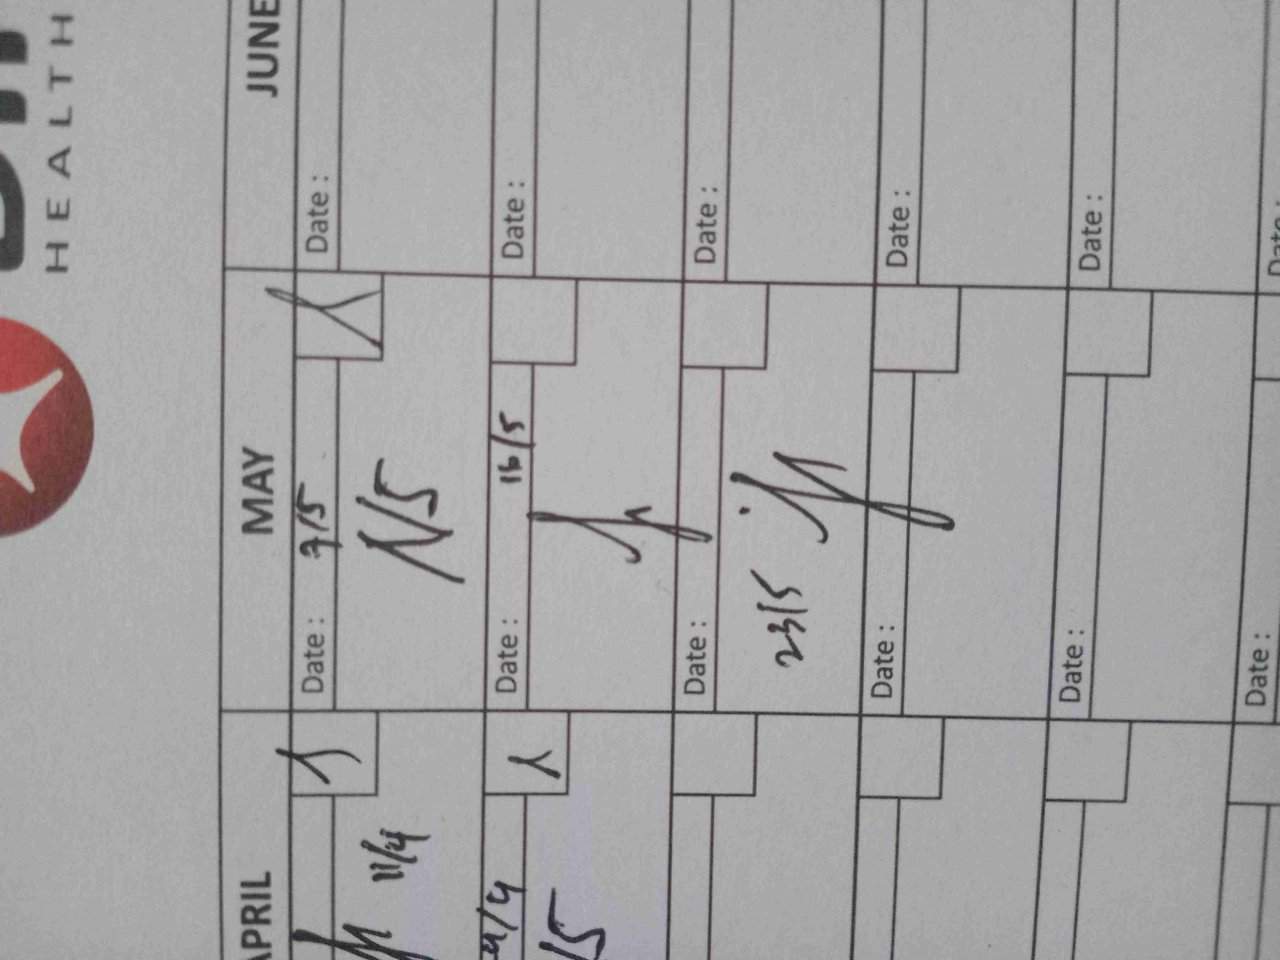 HEALTH
APRIL
11/4
MAY
Date : 7/5
Date : 16/5
Date :
23/5
Date :
Date :
Date :
JUNE
Date :
Date :
Date :
Date :
Date :